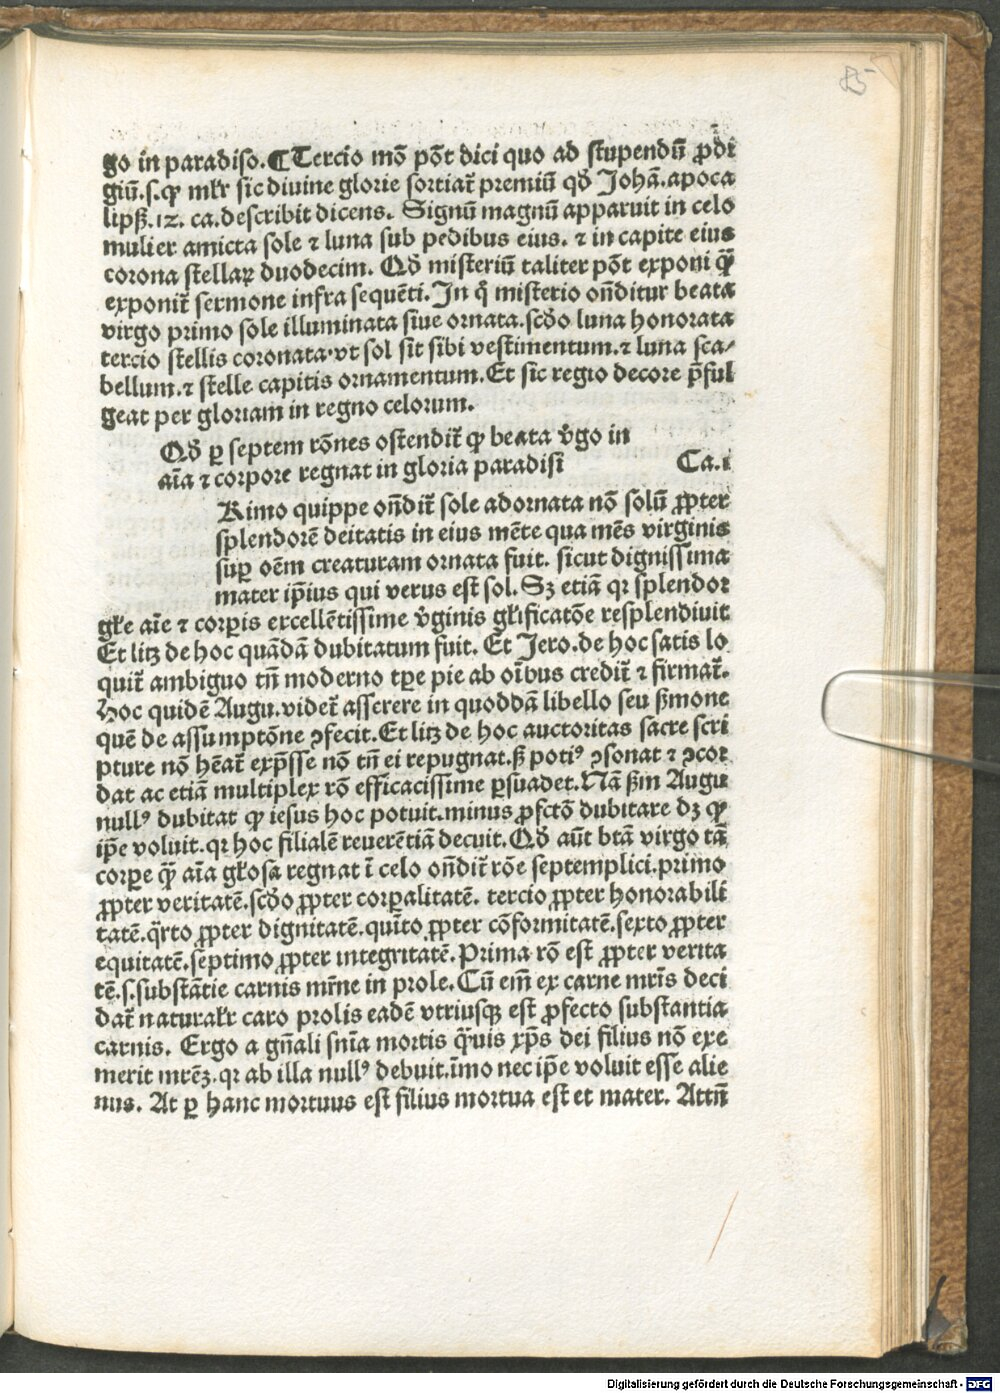 85
go in paradiso. ¶ Tercio mō pōt dici quo ad stupendū ꝓdi
giū.s.ꝙ mlr̄ sic divine glorie sortiat᷑ premiū qď Johā.apoca
lipß.12. ca.describit dicens. Signū magnū apparuit in celo
mulier amicta sole ⁊ luna sub pedibus eius. ⁊ in capite eius
corona stellaꝝ duodecim. Qď misteriū taliter pōt exponi q̄ȝ
exponit᷑ sermone infra sequēti. In q̊ misterio oñditur beata
virgo primo sole illuminata siue ornata.scďo luna honorata
tercio stellis coronata.vt sol sit sibi vestimentum.⁊ luna sca⸗
bellum.⁊ stelle capitis ornamentum. Et sic regio decore p̄ful
geat per gloriam in regno celorum.
Qď ꝑ septem rōnes ostendit᷑ ꝙ beata v̄go in
aīa ⁊ corpore regnat in gloria paradisi Ca.i
Rimo quippe oñdit᷑ sole adornata nō solū ꝓpter
splendorē deitatis in eius mēte qua mēs virginis
suꝑ oēm creaturam ornata fuit. sicut dignissima
mater ip̄ius qui verus est sol. Sȝ etiā qꝛ splendor
gl̄e aīe ⁊ corꝑis excellētissime v̄ginis gl̄ificatōe resplendiuit
Et litȝ de hoc quādā dubitatum fuit. Et Jero.de hoc satis lo
quit᷑ ambiguo tn̄ moderno tꝑe pie ab oībus credit᷑ ⁊ firmat᷑.
Hoc quidē Augu.videt᷑ asserere in quoddā libello seu ßmone
quē de assumptōne ꝯfecit. Et litȝ de hoc auctoritas sacre scri
pture nō hēat᷑ exp̄sse nō tn̄ ei repugnat.ß potiꝰ ꝯsonat ⁊ ꝯcor
dat ac etiā multiplex rō efficacissime ꝑsuadet. Nā ßm Augu
nullꝰ dubitat ꝙ iesus hoc potuit.minus ꝓfctō dubitare dȝ ꝙ
ip̄e voluit.qꝛ hoc filialē reuerētiā decuit. Qď aūt btā virgo tā
corꝑe q̄ȝ aīa gl̄osa regnat ī celo oñdit᷑ rōe septemplici.primo
ꝓpter veritatē.scďo ꝓpter corꝑalitatē. tercio ꝓpter honorabili
tatē.q̄rto ꝓpter dignitatē.quīto ꝓpter cōformitatē.sexto ꝓpter
equitatē.septimo ꝓpter integritatē. Prima rō est ꝓpter verita
tē.s.substātie carnis mr̄ne in prole. Cū em̄ ex carne mr̄is deci
dat᷑ naturalr̄ caro prolis eadē vtriusqȝ est ꝓfecto substantia
carnis. Ergo a gn̄ali sn̄ia mortis q̄ȝuis xp̄s dei filius nō exe
merit mr̄ēȝ.qꝛ ab illa nullꝰ debuit.īmo nec ip̄e voluit esse alie
nus. At ꝑ hanc mortuus est filius mortua est et mater. Attn̄
Digitalisierung gefördert durch die Deutsche Forschungsgemeinschaft - DFG